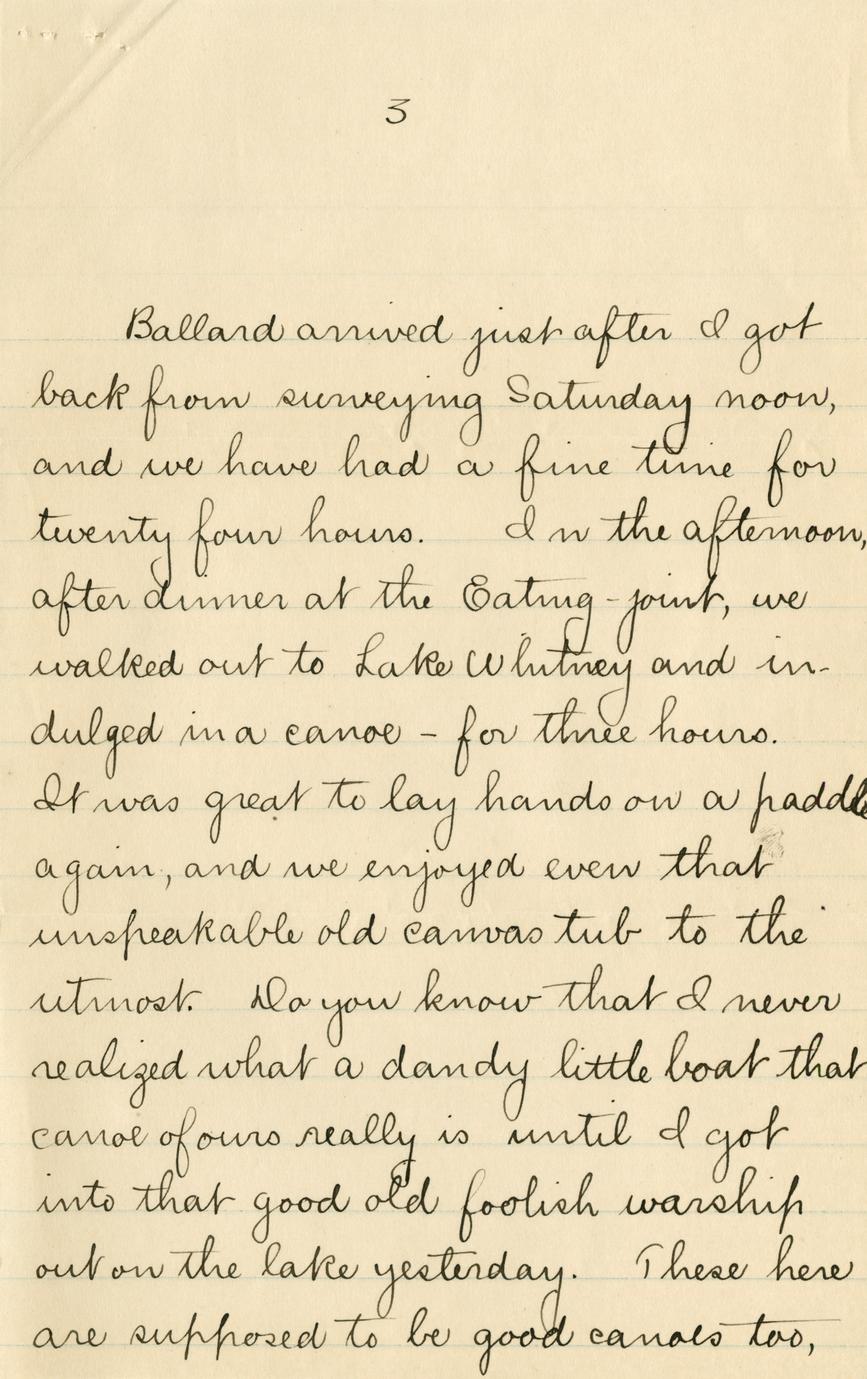 3
Ballard arrived just after I got
back from surveying Saturday noon,
and we have had a fine time for
twenty four hours. In the afternoon,
after dinner at the Eating-joint, we
walked out to Lake Whitney and in-
dulged in a canoe - for three hours.
It was great to lay hands on a paddle
again, and we enjoyed even that
unspeakable old canvas tub to the
utmost. Do you know that I never
realized what a dandy little boat that
canoe of ours really is until I got
into that good old foolish warship
out on the lake yesterday. These here
are supposed to be good canoes too,